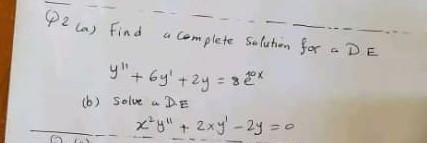 Q2 (a) Find a complete solution for a DE
y'' + 6y' + 2y = 8e^{10x}
(b) Solve a DE
x²y'' + 2xy' - 2y = 0